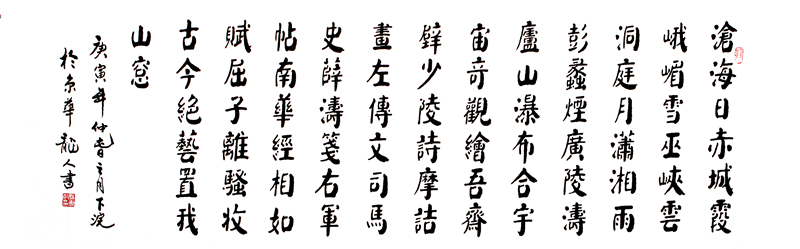 滄海日赤城霞
峨嵋雪巫峽雲
洞庭月瀟湘雨
彭蠡煙廣陵濤
廬山瀑布合宇
宙竒觀繪吾齋
壁少陵詩摩詰
畫左傳文司馬
史薛濤箋右軍
帖南華經相如
賦屈子離騷收
古今絕藝置我
山窓
庚寅年仲春之月下浣
於京華龍人書